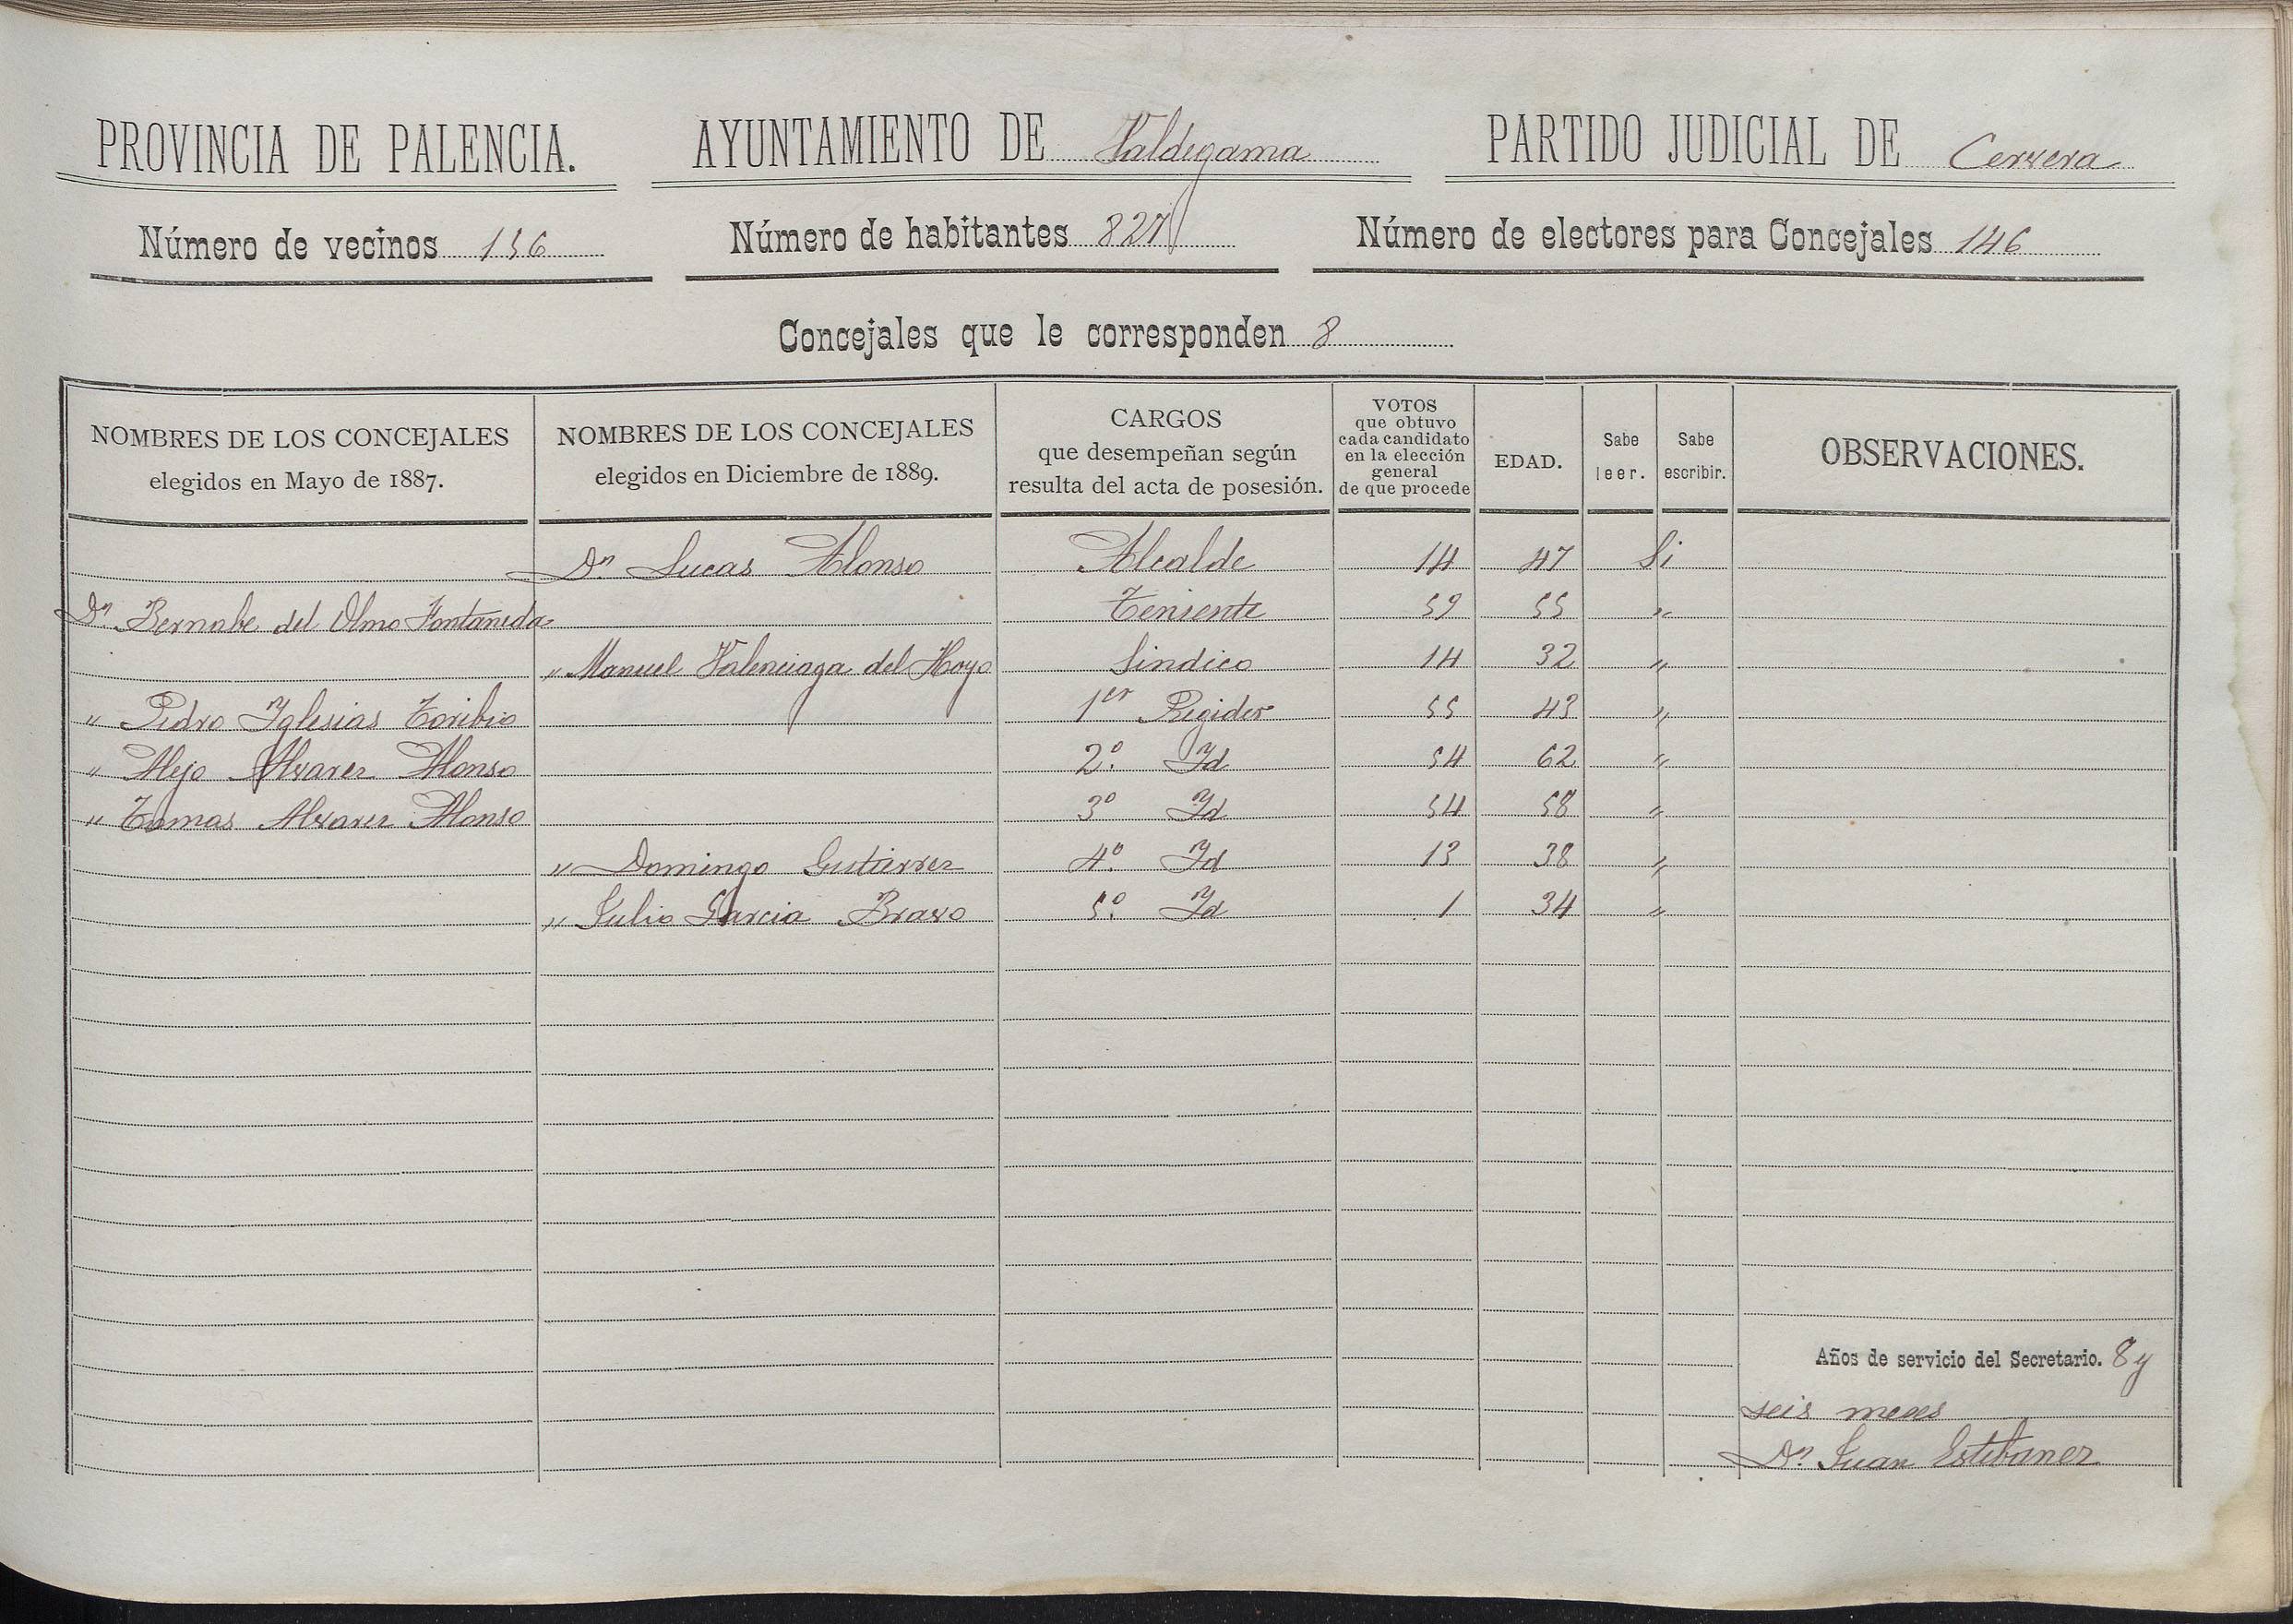 PROVINCIA DE PALENCIA. AYUNTAMIENTO DE Valdegama PARTIDO JUDICIAL DE Cervera
Número de vecinos 156 Número de habitantes 827 Número de electores para Concejales 146
Concejales que le corresponden 8
NOMBRES DE LOS CONCEJALES elegidos en Mayo de 1887. NOMBRES DE LOS CONCEJALES elegidos en Diciembre de 1889. CARGOS que desempeñan según resulta del acta de posesión. VOTOS que obtuvo cada candidato en la elección general de que procede EDAD. Sabe leer. Sabe escribir. OBSERVACIONES.
Dn. Lucas Alonso Alcalde 14 47 Si
Dn Bernabe del Olmo Fontaneda Teniente 59 55 "
" Manuel Valenciaga del Hoyo Sindico 14 32 "
" Pedro Iglesias Toribio 1er Regidor 55 43 "
" Alejo Alvarez Alonso 2º. Id 54 62 "
" Tomas Alvarez Alonso 3º Id 54 58 "
" Domingo Gutierrez 4º. Id 13 38 "
" Julio Garcia Bravo 5º. Id 1 34 "
Años de servicio del Secretario. 8 y
seis meses
Dn. Juan Estebanez